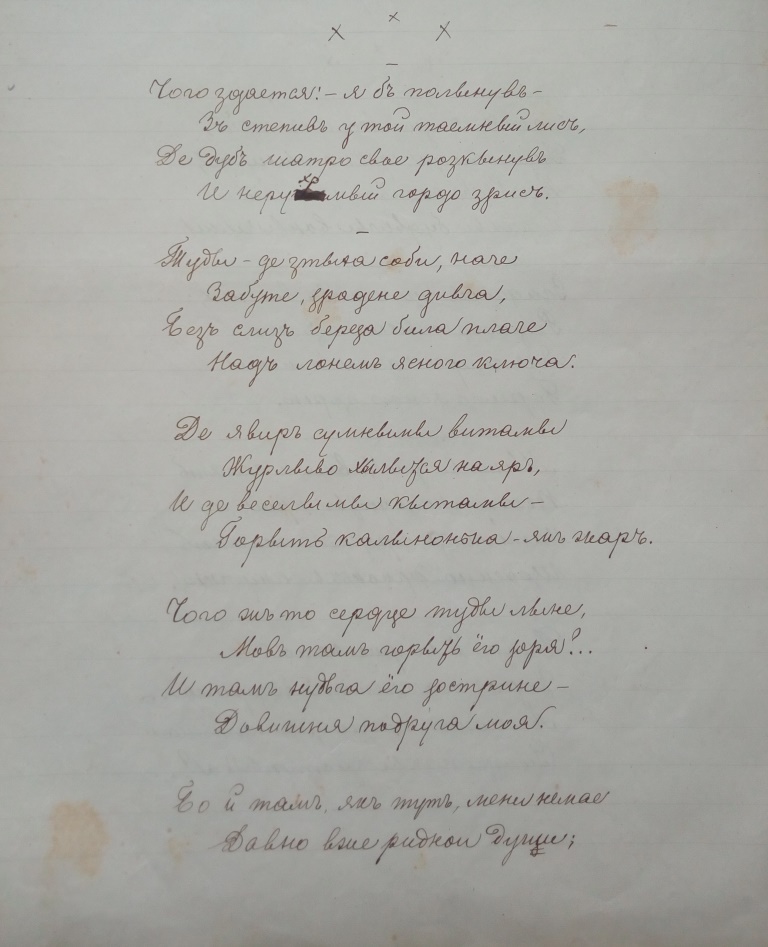 x x x
Чого здается! – я бъ полынувъ –
Зъ степивъ у той таемный лисъ,
Де дубъ шатро свое розкынувъ
И нерухомый гордо зрисъ.
Туды – де зтыха соби, наче
Забуте, зрадене дивча,
Безъ слизъ береза била плаче
Надъ лонемъ ясного ключа.
Де явиръ сумнымы витамы
Журлыво хылытся на яръ,
И де веселымы квитамы –
Горыть калынонька – якъ жаръ.
Чого жъ то сердце туды лыне,
Мовъ тамъ горыть ёго зоря?...
И тамъ нудьга ёго зострине –
Довичня подруга моя.
Бо й тамъ, якъ тутъ, мени немае
Давно вже риднои души;